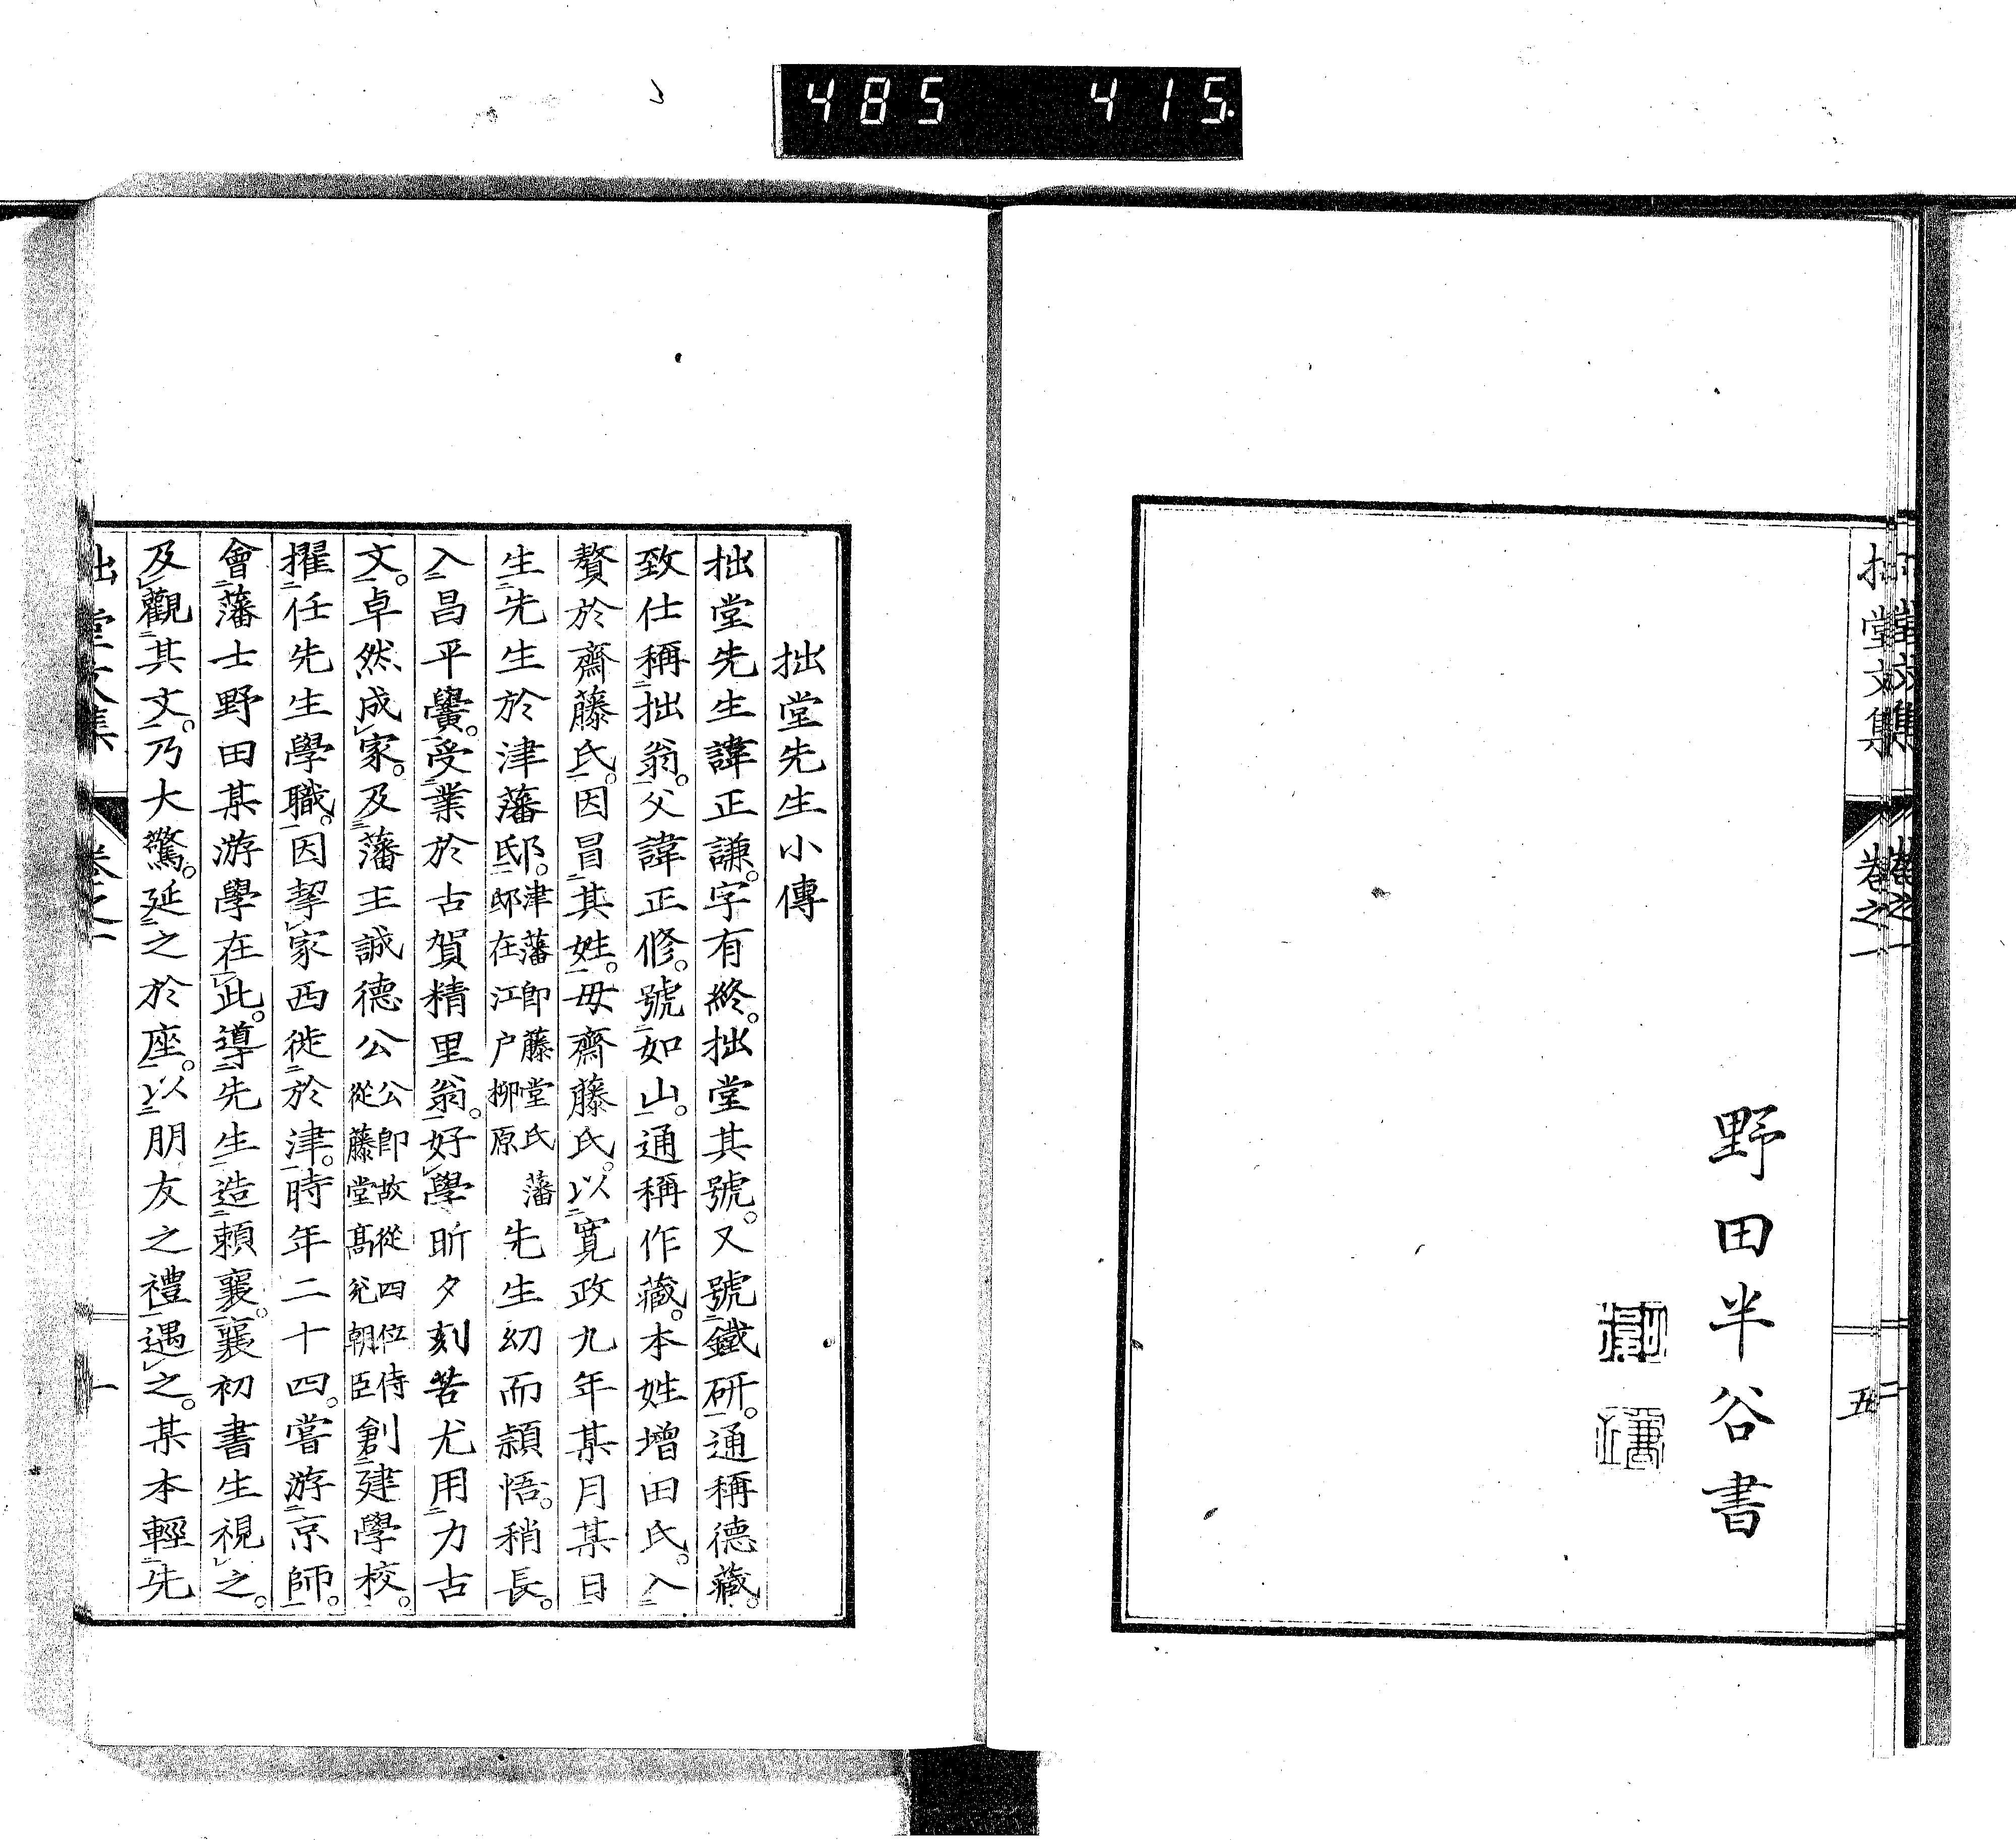 485 415.
拙堂文集
卷之一
五
野田半谷書
拙堂先生小傳
拙堂先生諱正謙。字有終。拙堂其號。又號鐵研。通稱德藏。
致仕稱拙翁。父諱正修。號如山。通稱作藏。本姓增田氏。入
贅於齋藤氏。因冒其姓。母齋藤氏。以寛政九年某月某日
生先生於津藩邸。津藩卽藤堂氏藩邸在江戶柳原先生幼而穎悟。稍長。
入昌平黌。受業於古賀精里翁。好學昕夕刻苦尤用力古
文。卓然成家。及藩主誠德公公卽故從四位侍從藤堂高兌朝臣創建學校。
擢任先生學職。因挈家西徙於津。時年二十四。嘗游京師。
會藩士野田某游學在此。導先生造賴襄。襄初書生視之。
及觀其文。乃大驚。延之於座。以朋友之禮遇之。某本輕先
拙堂文集
卷之一
一